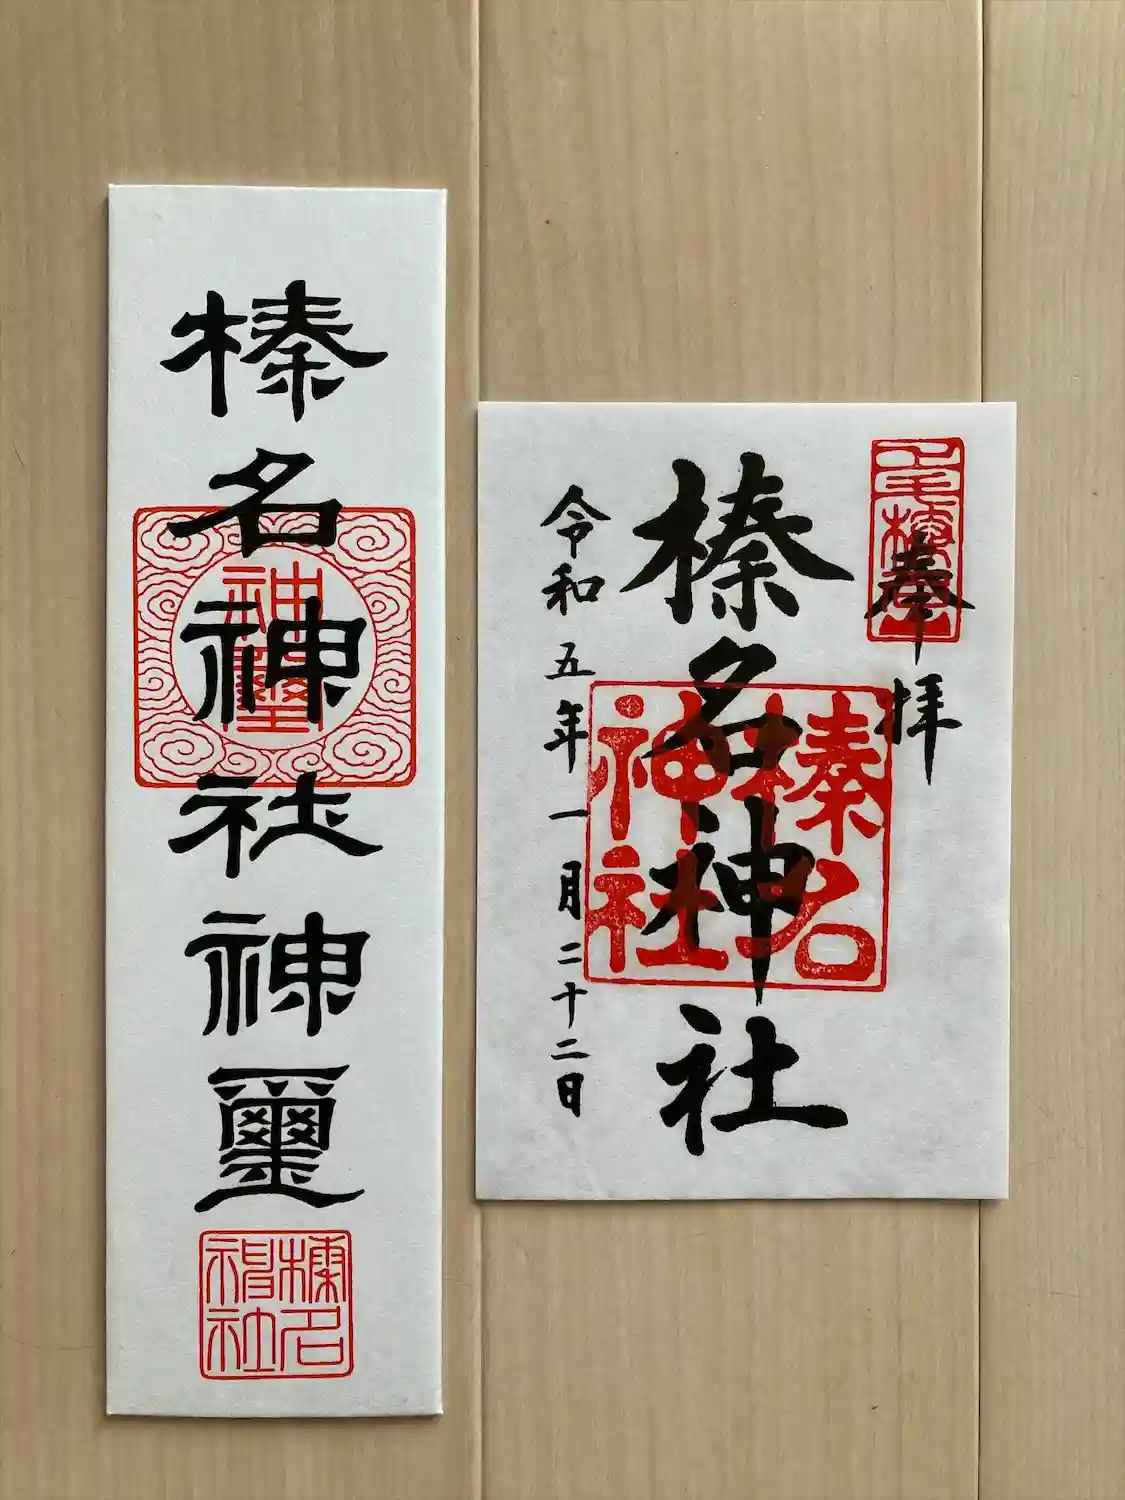 榛名神社神璽
神璽
榛名
神社
奉拝
榛名神社
榛名
神社
令和五年一月二十二日